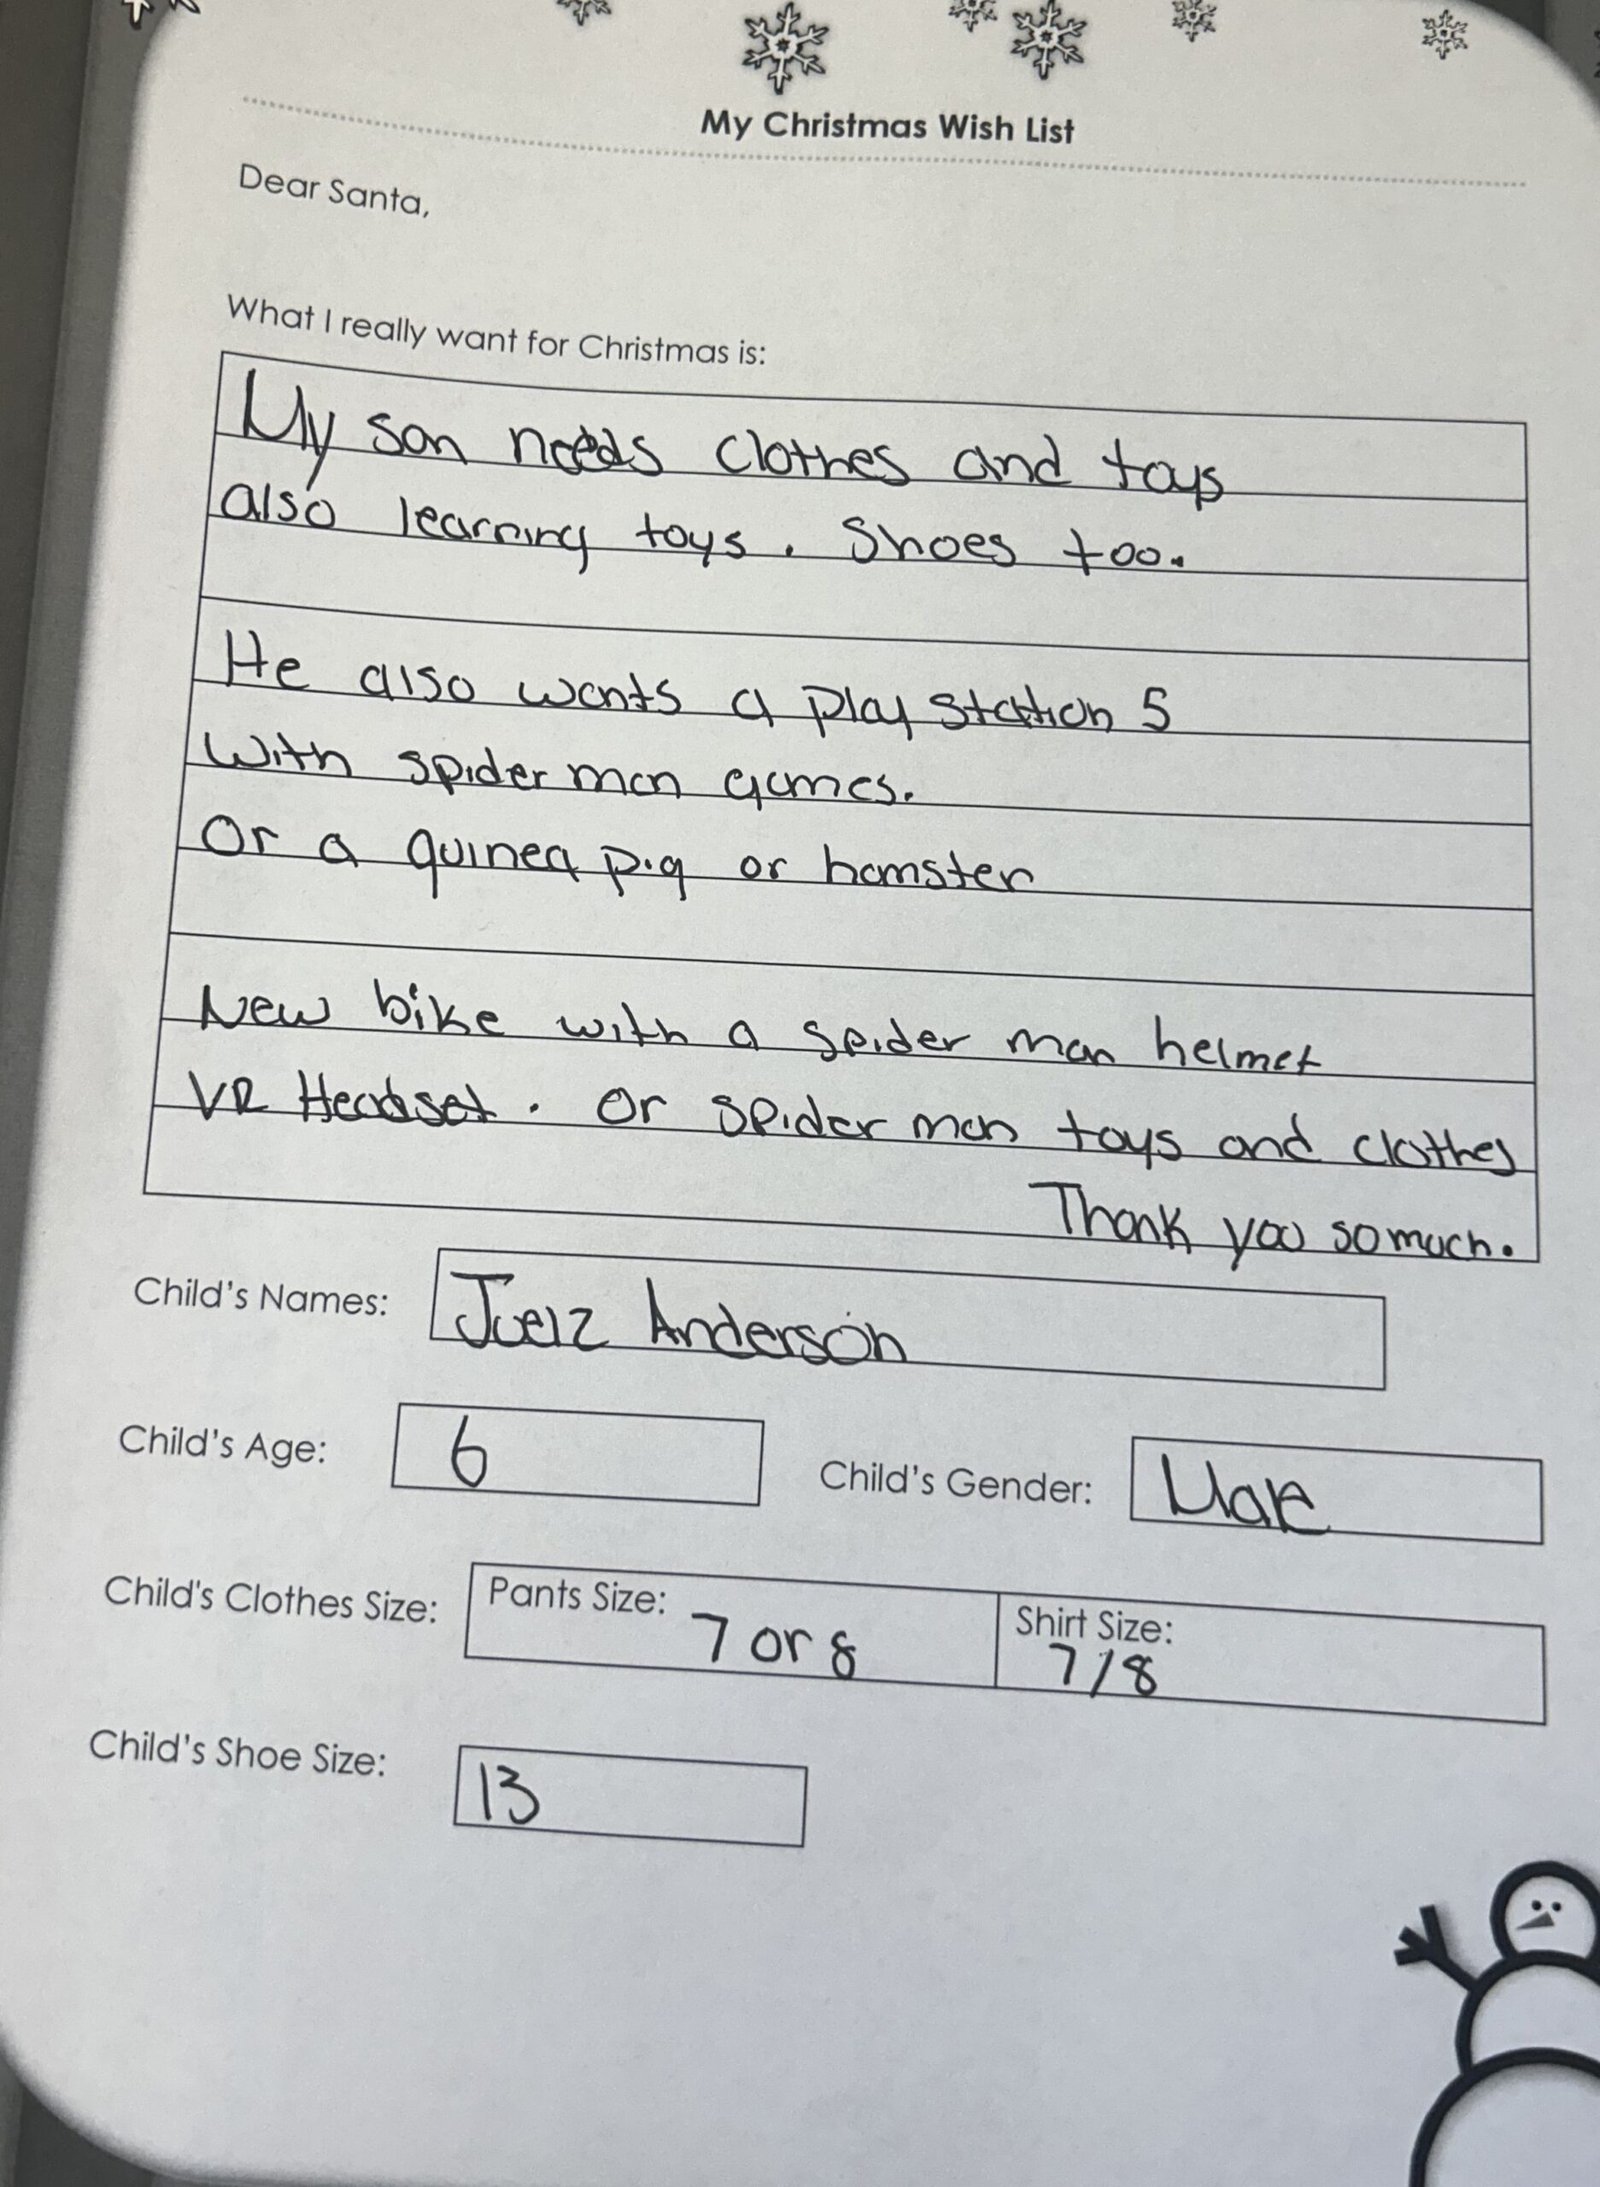 My Christmas Wish List
Dear Santa,
What I really want for Christmas is:
My son needs clothes and toys
also learning toys. Shoes too.
He also wants a play station 5
with spider man games.
Or a guinea pig or hamster
New bike with a spider man helmet
VR Headset. Or spider man toys and clothes
Thank you so much.
Child's Names: Juelz Anderson
Child's Age: 6
Child's Gender: Male
Child's Clothes Size: Pants Size: 7 or 8 Shirt Size: 7/8
Child's Shoe Size: 13